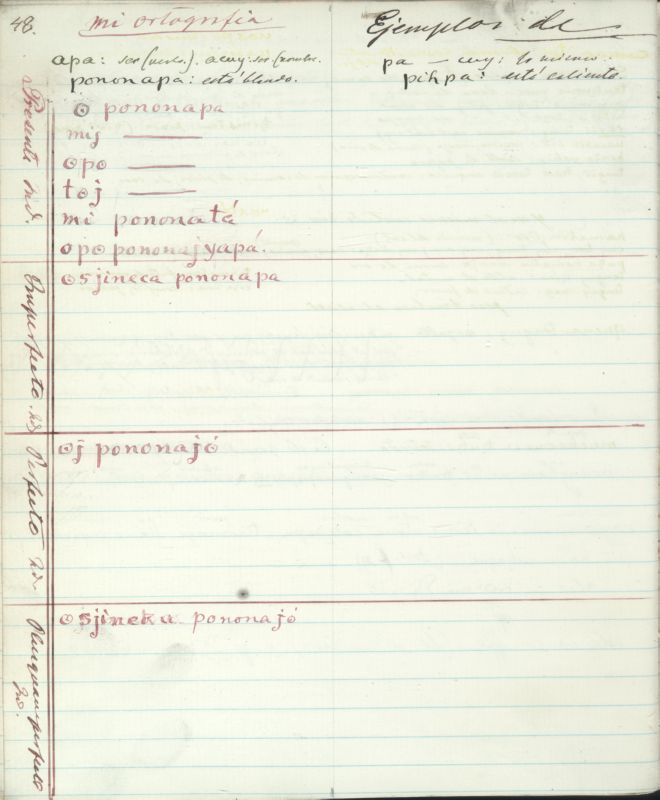 48.
mi ortografia
Ejemplos de
apa: ser (verbo). acuy: ser (nombre.
pa — cuy: lo mismo.
pononapa: está blando.
pihpa: está caliente.
Presente Ind.
ʘ pononapa
mij ———
ʘpʘ ———
tʘj ———
mi pononatá
ʘpʘ pononajyapá.
Imperfecto Ind.
ʘsjineca pononapa
Perfecto Ind.
ʘj pononajó
Pluscuamperfecto Ind.
ʘsjineka pononajó